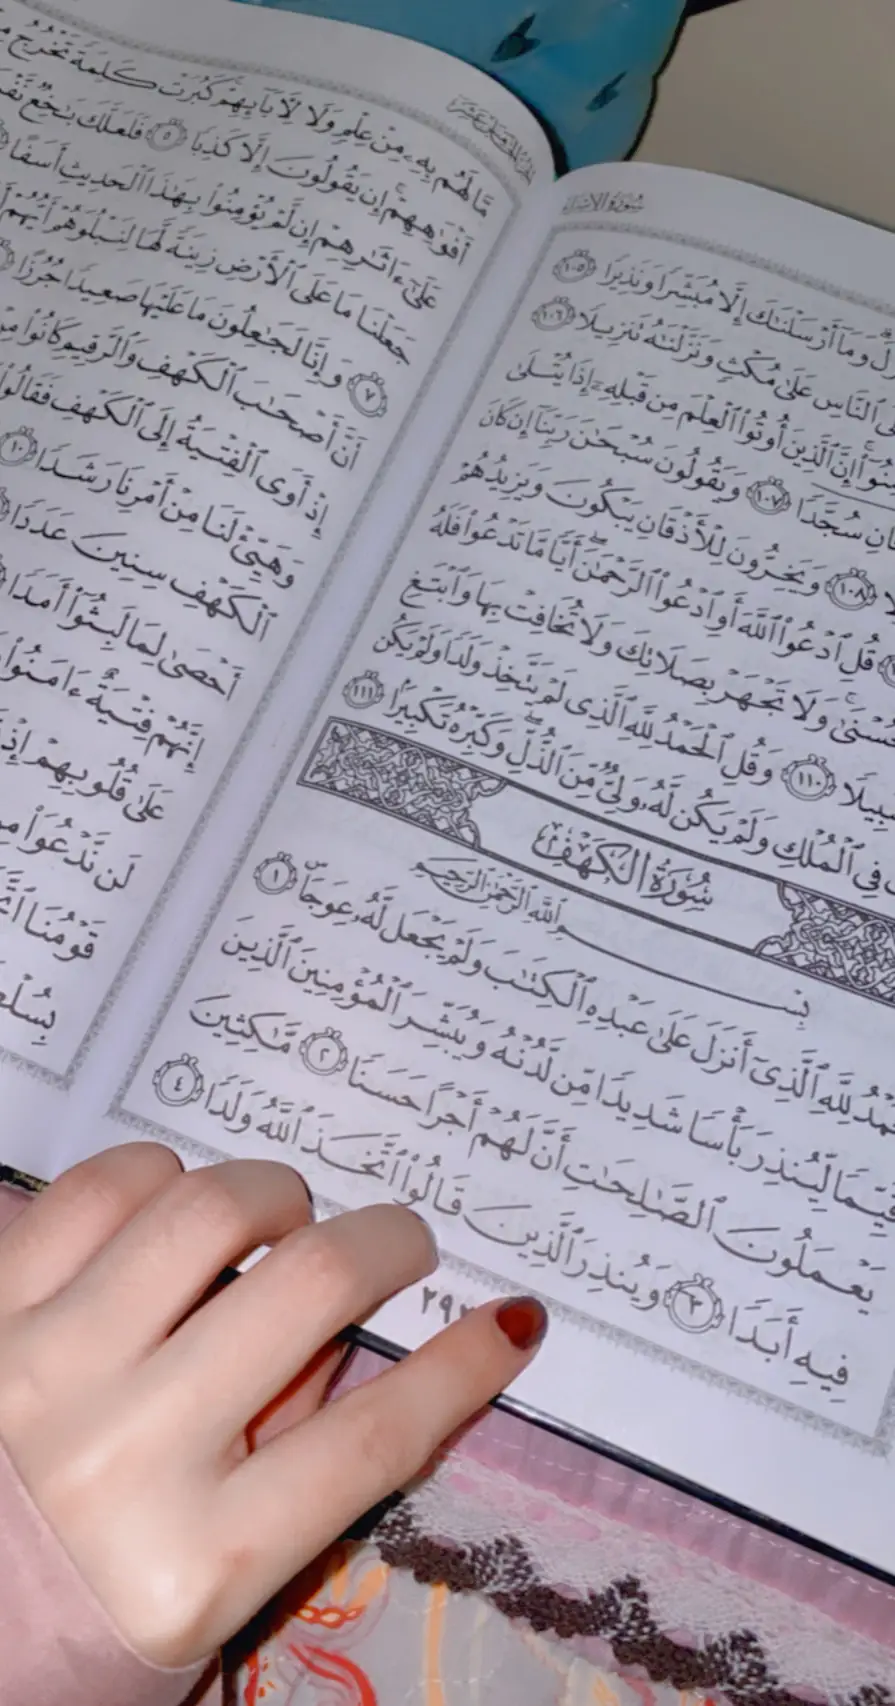 سُورَةُ الإِسْرَاء
وَمَآ أَرْسَلْنَٰكَ إِلَّا مُبَشِّرًا وَنَذِيرًا ١٠٥
ٱلنَّاسِ عَلَىٰ مُكْثٍ وَنَزَّلْنَٰهُ تَنزِيلًا ١٠٦
إِنَّ ٱلَّذِينَ أُوتُوا۟ ٱلْعِلْمَ مِن قَبْلِهِۦٓ إِذَا يُتْلَىٰ
سُجَّدًا ١٠٧ وَيَقُولُونَ سُبْحَٰنَ رَبِّنَآ إِن كَانَ
١٠٨ وَيَخِرُّونَ لِلْأَذْقَانِ يَبْكُونَ وَيَزِيدُهُمْ
قُلِ ٱدْعُوا۟ ٱللَّهَ أَوِ ٱدْعُوا۟ ٱلرَّحْمَٰنَ أَيًّا مَّا تَدْعُوا۟ فَلَهُ
وَلَا تَجْهَرْ بِصَلَاتِكَ وَلَا تُخَافِتْ بِهَا وَٱبْتَغِ
١١٠ وَقُلِ ٱلْحَمْدُ لِلَّهِ ٱلَّذِى لَمْ يَتَّخِذْ وَلَدًا وَلَمْ يَكُن
فِى ٱلْمُلْكِ وَلَمْ يَكُن لَّهُۥ وَلِىٌّ مِّنَ ٱلذُّلِّ وَكَبِّرْهُ تَكْبِيرًۢا ١١١
سُورَةُ الكَهْفِ
بِسْمِ ٱللَّهِ ٱلرَّحْمَٰنِ ٱلرَّحِيمِ
لِلَّهِ ٱلَّذِىٓ أَنزَلَ عَلَىٰ عَبْدِهِ ٱلْكِتَٰبَ وَلَمْ يَجْعَل لَّهُۥ عِوَجَاۜ ١
قَيِّمًا لِّيُنذِرَ بَأْسًا شَدِيدًا مِّن لَّدُنْهُ وَيُبَشِّرَ ٱلْمُؤْمِنِينَ ٱلَّذِينَ
يَعْمَلُونَ ٱلصَّٰلِحَٰتِ أَنَّ لَهُمْ أَجْرًا حَسَنًا ٢ مَّٰكِثِينَ
فِيهِ أَبَدًا ٣ وَيُنذِرَ ٱلَّذِينَ قَالُوا۟ ٱتَّخَذَ ٱللَّهُ وَلَدًا ٤
مَّا لَهُم بِهِۦ مِنْ عِلْمٍ وَلَا لِـَٔابَآئِهِمْ كَبُرَتْ كَلِمَةً تَخْرُجُ
أَفْوَٰهِهِمْ إِن يَقُولُونَ إِلَّا كَذِبًا ٥ فَلَعَلَّكَ بَٰخِعٌ
عَلَىٰٓ ءَاثَٰرِهِمْ إِن لَّمْ يُؤْمِنُوا۟ بِهَٰذَا ٱلْحَدِيثِ أَسَفًا
جَعَلْنَا مَا عَلَى ٱلْأَرْضِ زِينَةً لَّهَا لِنَبْلُوَهُمْ أَيُّهُمْ
٧ وَإِنَّا لَجَٰعِلُونَ مَا عَلَيْهَا صَعِيدًا جُرُزًا
أَنَّ أَصْحَٰبَ ٱلْكَهْفِ وَٱلرَّقِيمِ كَانُوا۟ مِنْ
إِذْ أَوَى ٱلْفِتْيَةُ إِلَى ٱلْكَهْفِ فَقَالُوا۟
وَهَيِّئْ لَنَا مِنْ أَمْرِنَا رَشَدًا ١٠
ٱلْكَهْفِ سِنِينَ عَدَدًا
أَحْصَىٰ لِمَا لَبِثُوٓا۟ أَمَدًا
إِنَّهُمْ فِتْيَةٌ ءَامَنُوا۟
عَلَىٰ قُلُوبِهِمْ إِذْ
لَن نَّدْعُوَا۟ مِن
قَوْمُنَا